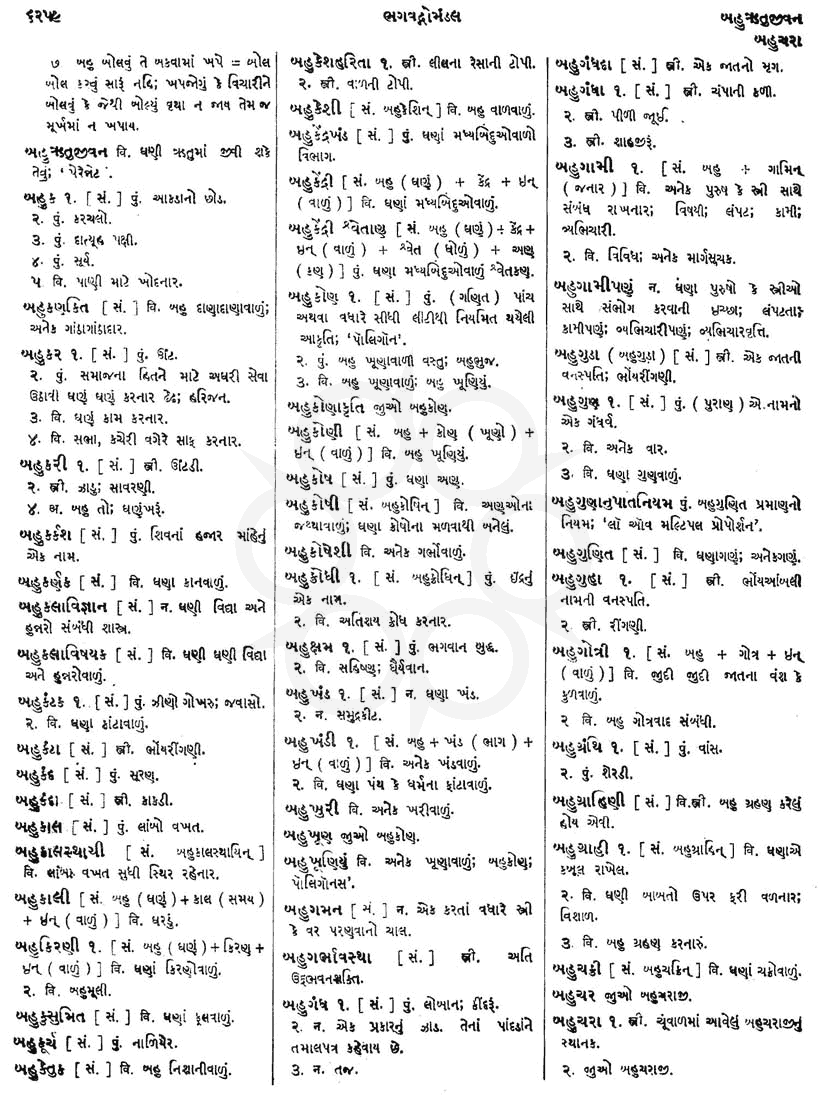 ૬૨૫૯
ભગવદ્ગોમંડલ
બહુઋતુજીવન
બહુચરા
૭ બહુ બોલવું તે બકવામાં ખપે = બોલ
બોલ કરવું સારું નહિ; ખપજોગું કે વિચારીને
બોલવું કે જેથી બોલ્યું વૃથા ન જાય તેમ જ
મૂર્ખમાં ન ખપાય.
બહુઋતુજીવન વિ. ઘણી ઋતુમાં જીવી શકે
તેવું; ‘પેરેનેટ’.
બહુક ૧. [ સં. ] પું. આકડાનો છોડ.
૨. પું. કરચલો.
૩. પું. દાત્યૂહ પક્ષી.
૪. પું. સૂર્ય.
૫ વિ. પાણી માટે ખોદનાર.
બહુકણકિત [ સં. ] વિ. બહુ દાણાદાણાવાળું;
અનેક ગાંડાગાંડાદાર.
બહુકર ૧. [ સં. ] પું. ઊંટ.
૨. પું. સમાજના હિતને માટે અઘરી સેવા
ઉઠાવી ઘણું ઘણું કરનાર ઢેઢ; હરિજન.
૩. વિ. ઘણું કામ કરનાર.
૪. વિ. સભા, કચેરી વગેરે સાફ કરનાર.
બહુકરી ૧. [ સં. ] સ્ત્રી. ઊંટડી.
૨. સ્ત્રી. ઝાડુ; સાવરણી.
૪. અ. બહુ તો; ઘણુંખરૂં.
બહુકર્કશ [ સં. ] પું. શિવનાં હજાર માંહેનું
એક નામ.
બહુકર્ણક [ સં. ] વિ. ઘણા કાનવાળું.
બહુકલાવિજ્ઞાન [ સં. ] ન. ઘણી વિદ્યા અને
હુન્નરો સંબંધી શાસ્ત્ર.
બહુકલાવિષયક [ સં. ] વિ. ઘણી ઘણી વિદ્યા
અને હુન્નરોવાળું.
બહુકંટક ૧. [ સં. ] પું. ઝીણો ગોખરુ; જવાસો.
૨. વિ. ઘણા કાંટાવાળું.
બહુકંટા [ સં. ] સ્ત્રી. ભોંયરીંગણી.
બહુકંદ [ સં. ] પું. સૂરણ.
બહુકંદા [ સં. ] સ્ત્રી. કાકડી.
બહુકાલ [ સં. ] પું. લાંબો વખત.
બહુકાલસ્થાયી [ સં. બહુકાલસ્થાયિન્ ]
વિ. લાંબા વખત સુધી સ્થિર રહેનાર.
બહુકાલી [ સં. બહુ ( ઘણું ) + કાલ ( સમય )
+ ઇન્ ( વાળું ) ] વિ. ઘરડું.
બહુકિરણી ૧. [ સં. બહુ ( ઘણું ) + કિરણ +
ઇન્ ( વાળું ) ] વિ. ઘણાં કિરણોવાળું.
૨. વિ. બહુમૂલી.
બહુકુસુમિત [ સં. ] વિ. ઘણાં ફૂલવાળું.
બહુકૂર્ચ [ સં. ] પું. નાળિયેર.
બહુકેતુક [ સં. ] વિ. બહુ નિશાનીવાળું.
બહુકેશહરિતા ૧. સ્ત્રી. લીલના રેસાની ટોપી.
૨. સ્ત્રી. વાળની ટોપી.
બહુકેશી [ સં. બહુકેશિન્ ] વિ. બહુ વાળવાળું.
બહુકેંદ્રખંડ [ સં. ] પું. ઘણાં મધ્યબિંદુઓવાળો
વિભાગ.
બહુકેંદ્રી [ સં. બહુ ( ઘણું ) + કેંદ્ર + ઇન્
( વાળું ) ] વિ. ઘણાં મધ્યબિંદુઓવાળું.
બહુકેંદ્રી શ્વેતાણુ [ સં. બહુ ( ઘણું ) + કેંદ્ર +
ઇન્ ( વાળું ) + શ્વેત ( ધોળું ) + અણુ
( કણ ) ] પું. ઘણા મધ્યબિંદુઓવાળું શ્વેતકણ.
બહુકોણ ૧. [ સં. ] પું. ( ગણિત ) પાંચ
અથવા વધારે સીધી લીટીથી નિયમિત થયેલી
આકૃતિ; ‘પૉલિગૉન’.
૨. પું. બહુ ખૂણાવાળી વસ્તુ; બહુભુજ.
૩. વિ. બહુ ખૂણાવાળું; બહુ ખૂણિયું.
બહુકોણાકૃતિ જુઓ બહુકોણ.
બહુકોણી [ સં. બહુ + કોણ ( ખૂણો ) +
ઇન્ ( વાળું ) ] વિ. બહુ ખૂણિયું.
બહુકોષ [ સં. ] પું. ઘણા અણુ.
બહુકોષી [ સં. બહુકોષિન્ ] વિ. અણુઓના
જથ્થાવાળું; ઘણા કોષોના મળવાથી બનેલું.
બહુકોષેશી વિ. અનેક ગર્ભોવાળું.
બહુક્રોધી ૧. [ સં. બહુક્રોધિન્ ] પું. ઇંદ્રનું
એક નામ.
૨. વિ. અતિશય ક્રોધ કરનાર.
બહુક્ષમ ૧. [ સં. ] પું. ભગવાન બુદ્ધ.
૨. વિ. સહિષ્ણુ; ધૈર્યવાન.
બહુખંડ ૧. [ સં. ] ન. ઘણા ખંડ.
૨. ન. સમુદ્રકીટ.
બહુખંડી ૧. [ સં. બહુ + ખંડ ( ભાગ ) +
ઇન્ ( વાળું ) ] વિ. અનેક ખંડવાળું.
૨. વિ. ઘણા પંથ કે ધર્મના ફાંટાવાળું.
બહુખુરી વિ. અનેક ખરીવાળું.
બહુખૂણ જુઓ બહુકોણ.
બહુખૂણિયું વિ. અનેક ખૂણાવાળું; બહુકોણ;
‘પૉલિગૉનસ’.
બહુગમન [ સં. ] ન. એક કરતાં વધારે સ્ત્રી
કે વર પરણવાનો ચાલ.
બહુગર્ભાવસ્થા [ સં. ] સ્ત્રી. અતિ
ઉદ્દ્ભવનશક્તિ.
બહુગંધ ૧. [ સં. ] પું. લોબાન; કીંદરૂં.
૨. ન. એક પ્રકારનું ઝાડ. તેનાં પાંદડાંને
તમાલપત્ર કહેવાય છે.
૩. ન. તજ.
બહુગંધદા [ સં. ] સ્ત્રી. એક જાતનો મૃગ.
બહુગંધા ૧. [ સં. ] સ્ત્રી. ચંપાની કળી.
૨. સ્ત્રી. પીળી જૂઈ.
૩. સ્ત્રી. શાહજીરૂં.
બહુગામી ૧. [ સં. બહુ + ગામિન્
( જનાર ) ] વિ. અનેક પુરુષ કે સ્ત્રી સાથે
સંબંધ રાખનાર; વિષયી; લંપટ; કામી;
વ્યભિચારી.
૨. વિ. વિવિધ; અનેક માર્ગસૂચક.
બહુગામીપણું ન. ઘણા પુરુષો કે સ્ત્રીઓ
સાથે સંભોગ કરવાની ઇચ્છા; લંપટતા;
કામીપણું; વ્યભિચારીપણું; વ્યભિચારવૃત્તિ.
બહુગુડા ( બહુગુડા ) [ સં. ] સ્ત્રી. એક જાતની
વનસ્પતિ; ભોંયરીંગણી.
બહુગુણ ૧. [ સં. ] પું. ( પુરાણ ) એ નામનો
એક ગંધર્વ.
૨. વિ. અનેક વાર.
૩. વિ. ઘણા ગુણવાળું.
બહુગુણાનુપાતનિયમ પું. બહુગુણિત પ્રમાણનો
નિયમ; ‘લૉ ઑવ મલ્ટિપલ પ્રોપોર્શન’.
બહુગુણિત [ સં. ] વિ. ઘણાગણું; અનેકગણું.
બહુગુહા ૧. [ સં. ] સ્ત્રી. ભોંયઆંબલી
નામની વનસ્પતિ.
૨. સ્ત્રી. રીંગણી.
બહુગોત્રી ૧. [ સં. બહુ + ગોત્ર + ઇન્
( વાળું ) ] વિ. જુદી જુદી જાતના વંશ કે
કુળવાળું.
૨ વિ. બહુ ગોત્રવાદ સંબંધી.
બહુગ્રંથિ ૧. [ સં. ] પું. વાંસ.
૨. પું. શેરડી.
બહુગ્રાહિણી [ સં. ] વિ.સ્ત્રી. બહુ ગ્રહણ કરેલું
હોય એવી.
બહુગ્રાહી ૧. [ સં. બહુગ્રાહિન્ ] વિ. ઘણાએ
કબૂલ રાખેલ.
૨. વિ. ઘણી બાબતો ઉપર ફરી વળનાર;
વિશાળ.
૩. વિ. બહુ ગ્રહણ કરનારું.
બહુચક્રી [ સં. બહુચક્રિન્ ] વિ. ઘણાં ચક્રોવાળું.
બહુચર જુઓ બહુચરાજી.
બહુચરા ૧. સ્ત્રી. ચૂંવાળમાં આવેલું બહુચરાજીનું
સ્થાનક.
૨. જુઓ બહુચરાજી.